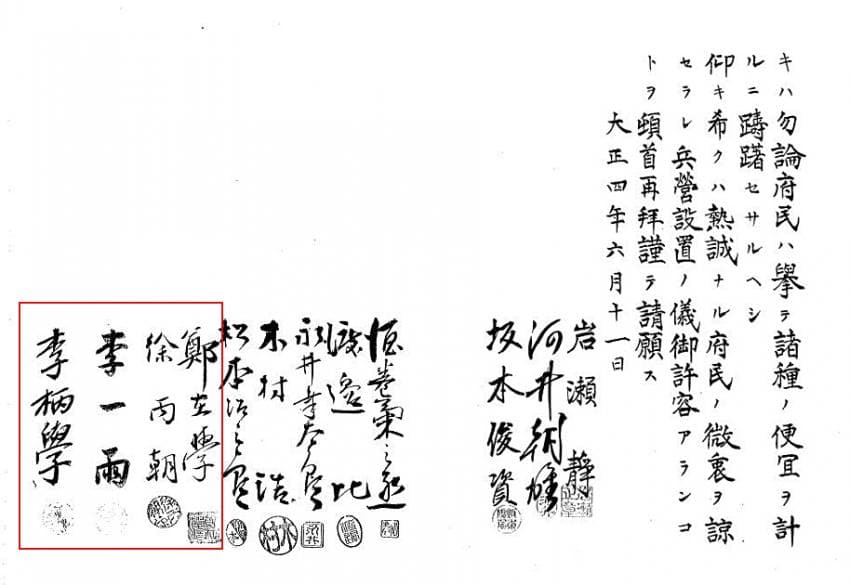 キハ勿論府民ハ擧テ諸種ノ便宜ヲ計
ルニ躊躇セサルヘシ
仰キ希クハ熱誠ナル府民ノ微衷ヲ諒
セラレ兵營設置ノ儀御許容アランコ
トヲ頓首再拜謹テ請願ス
大正四年六月十一日
岩瀬靜
河井朝雄
坂本俊資
渡邊
永井幸太郎
木村浩
鄭在學
徐丙朝
李一雨
李柄學